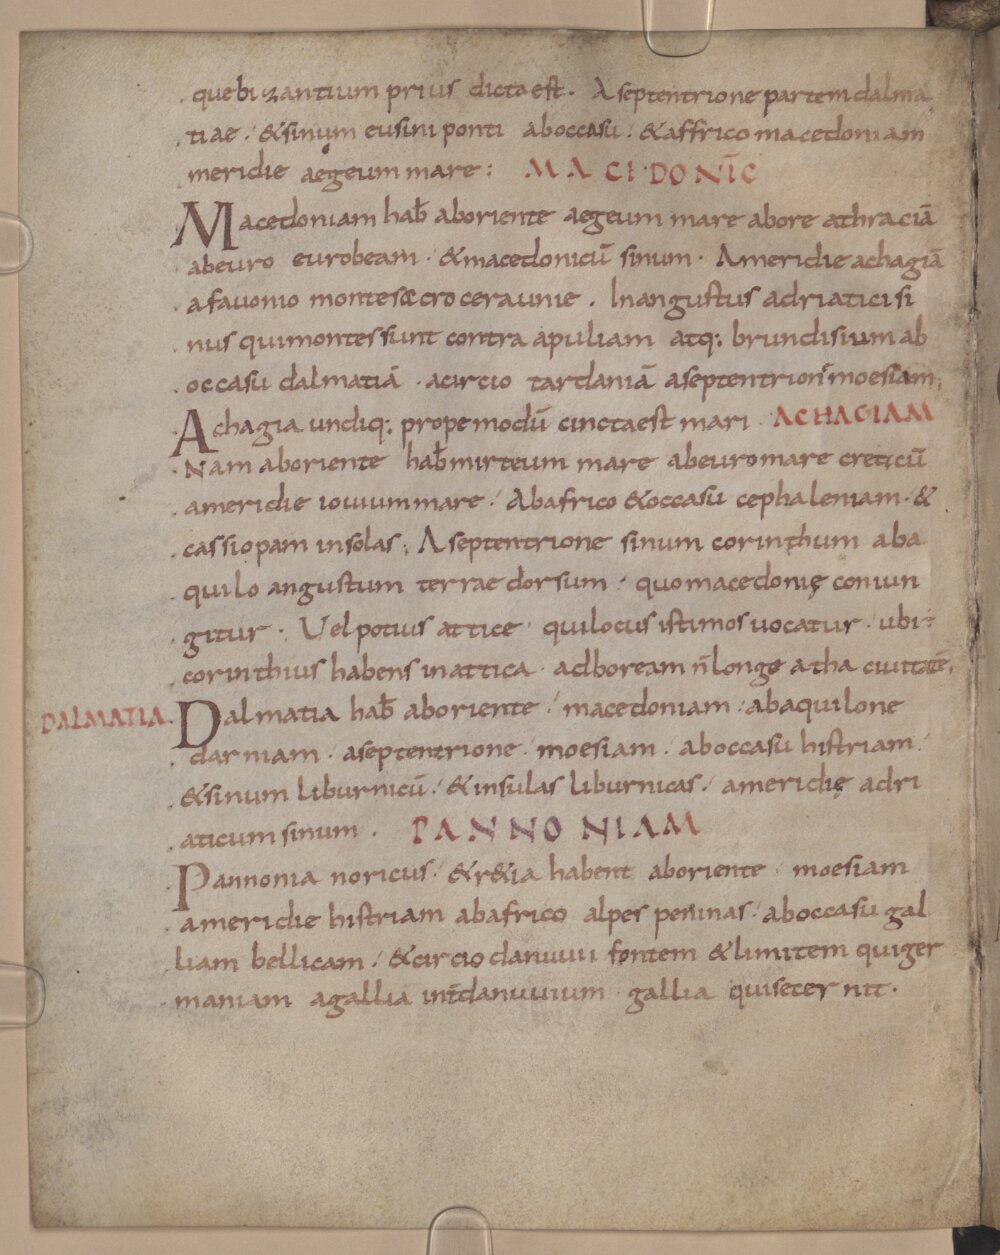 quebizantium prius dicta est. A septentrione partem dalma
tiae. & sinum eusini ponti ab occasu. & affrico macedoniam
meridie aegeum mare: MACIDONIC̄
Macedoniam hab̄ ab oriente aegeum mare abore athraciā
ab euro eurobeam. & macedonicū sinum. A meridie achagiā
a fauonio montes acroceraunie. In angustus adriatici si
nus qui montes sunt contra apuliam atq; brundisium ab
occasu dalmatiā. acircio tardaniā a septentrione moesiam;
Achagia undiq; prope modū cincta est mari. ACHAGIAM
Nam ab oriente hab̄ mirteum mare ab euro mare creticū
a meridie iouium mare. Ab africo & occasu cephaleniam. &
cassiopam insolas; A septentrione sinum corinthum ab a
quilo angustum terrae dorsum. quo macedonię coniun
gitur. Uel potius attice. qui locus istimos uocatur. ubi
corinthius habens in attica. ad boream n̄ longe atha ciuitatē.
DALMATIA. Dalmatia hab̄ ab oriente. macedoniam. ab aquilone
darniam. a septentrione. moesiam. ab occasu histriam.
& sinum liburnicū. & insulas liburnicas. a meridię adri
aticum sinum. PANNONIAM
Pannonia noricus. & r&ia habent ab oriente. moesiam
a meridie histriam ab africo alpes peninas. ab occasu gal
liam bellicam. & circio danuuii fontem & limitem qui ger
maniam a gallia int̄ danuuium gallia qui secernit.